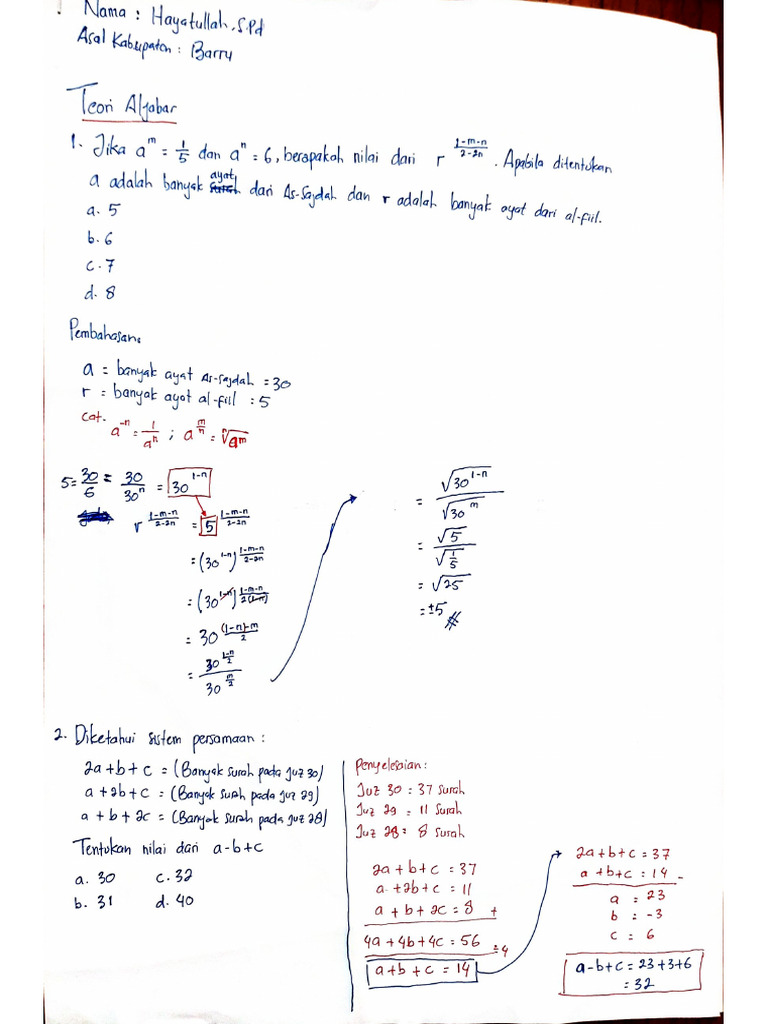 Nama : Hayatullah, S.Pd
Asal Kabupaten : Barru
Teori Aljabar
1. Jika a^m = 1/5 dan a^n = 6, berapakah nilai dari r^((1-m-n)/(2-2n)). Apabila ditentukan
a adalah banyak ayat dari As-Sajdah dan r adalah banyak ayat dari al-fiil.
a. 5
b. 6
c. 7
d. 8
Pembahasan.
a = banyak ayat As-Sajdah = 30
r = banyak ayat al-fiil : 5
cat.
a^-n = 1/a^n ; a^(m/n) = ⁿ√a^m
5 = 30/6 = 30/30^n = 30^(1-n)
r^((1-m-n)/(2-2n)) = 5^((1-m-n)/(2-2n))
= (30^(1-n))^((1-m-n)/(2-2n))
= (30^(1-n))^((1-m-n)/(2(1-n)))
= 30^(((1-n)-m)/2)
= 30^((1-n)/2) / 30^(m/2)
= √30^(1-n) / √30^m
= √5 / √(1/5)
= √25
= ±5 #
2. Diketahui sistem persamaan :
2a + b + c = (Banyak surah pada Juz 30)
a + 2b + c = (Banyak surah pada Juz 29)
a + b + 2c = (Banyak surah pada Juz 28)
Tentukan nilai dari a-b+c
a. 30 c. 32
b. 31 d. 40
Penyelesaian :
Juz 30 : 37 surah
Juz 29 : 11 surah
Juz 28 : 8 surah
2a + b + c = 37
a + 2b + c = 11
a + b + 2c = 8 +
4a + 4b + 4c = 56 ÷4
a + b + c = 14
2a + b + c = 37
a + b + c = 14 -
a = 23
b = -3
c = 6
a-b+c = 23+3+6
= 32